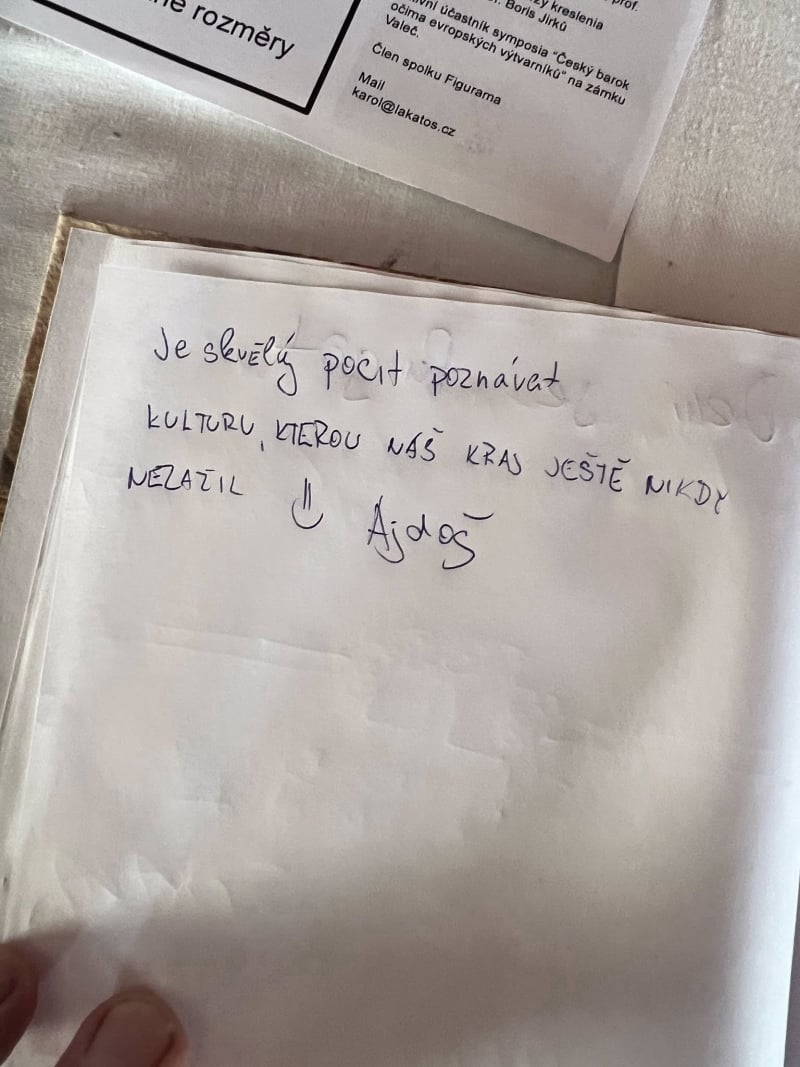 né rozměry
prof.
zy kreslenia
Boris Jirků
ivní účastník symposia "Český barok
očima evropských výtvarníků" na zámku
Valeč.
Člen spolku Figurama
Mail
karol@lakatos.cz
Je skvělý pocit poznávat
KULTURU, KTEROU NÁŠ KRAJ JEŠTĚ NIKDY
NEZAŽIL
Ajdoš